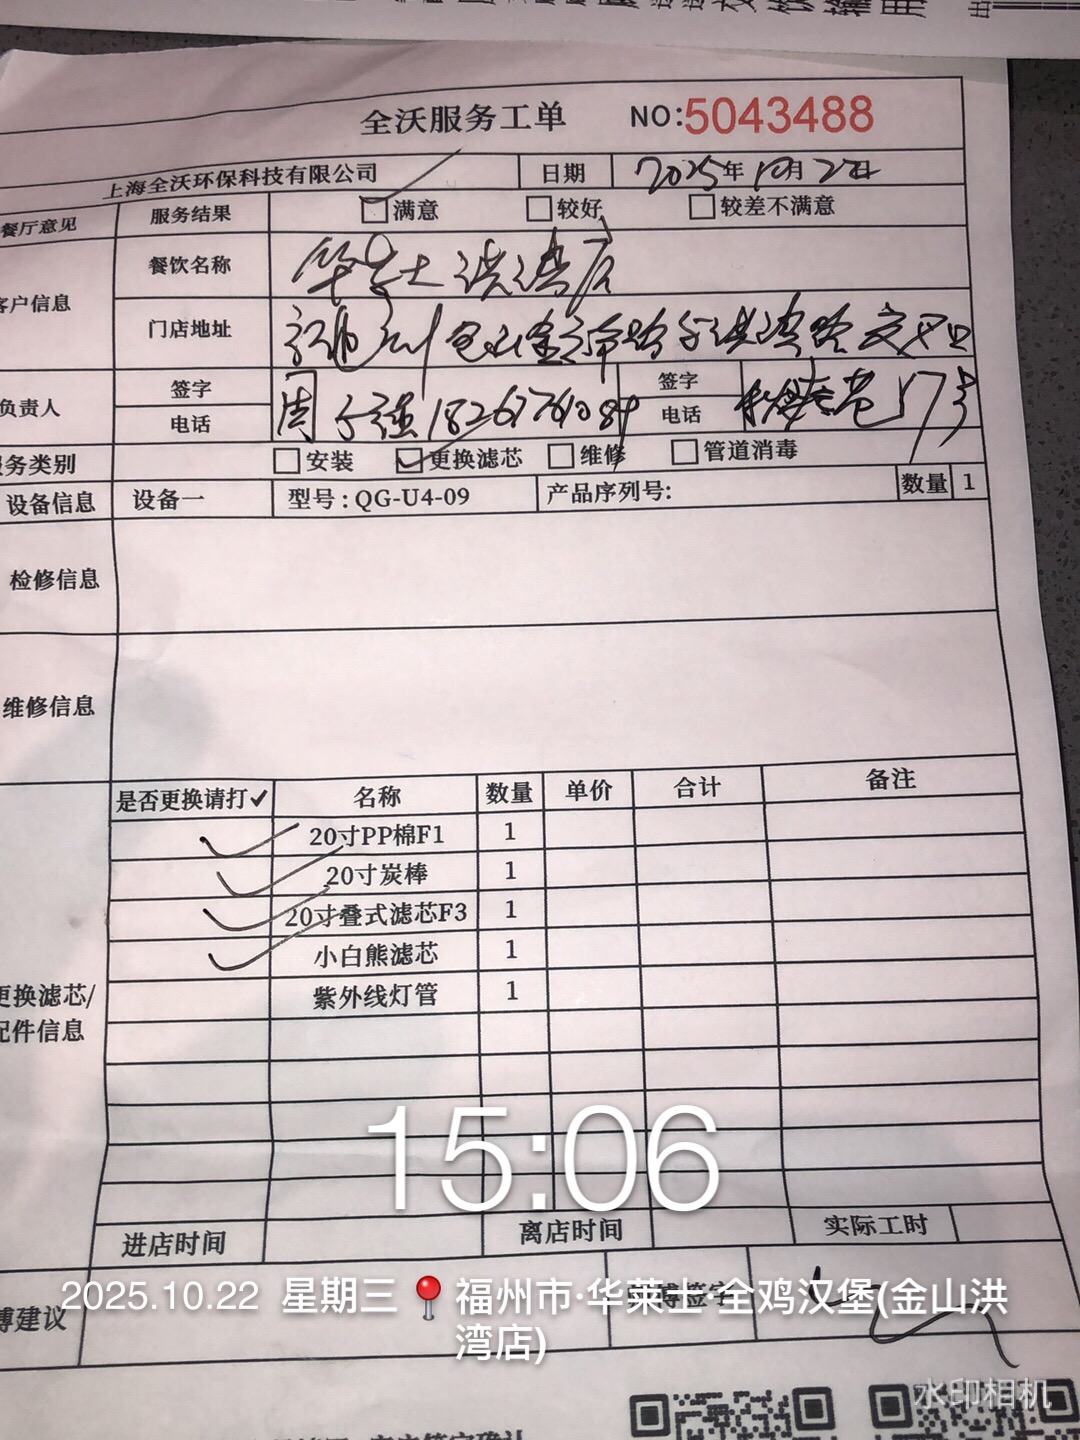 全沃服务工单 NO:5043488
上海全沃环保科技有限公司 日期 2025年10月22日
餐厅意见 服务结果 满意 较好 较差不满意
客户信息 餐饮名称 华莱士洪湾店
门店地址 福州 金山金 路与洪湾路交叉口
负责人 签字 周子强 签字
电话 18267761089 电话 57号
服务类别 安装 更换滤芯 维修 管道消毒
设备信息 设备一 型号:QG-U4-09 产品序列号: 数量 1
检修信息
维修信息
是否更换请打✓ 名称 数量 单价 合计 备注
✓ 20寸PP棉F1 1
✓ 20寸炭棒 1
✓ 20寸叠式滤芯F3 1
✓ 小白熊滤芯 1
紫外线灯管 1
更换滤芯/
配件信息
15:06
进店时间 离店时间 实际工时
2025.10.22 星期三 福州市·华莱士·全鸡汉堡(金山洪
湾店)
建议 签字
水印相机